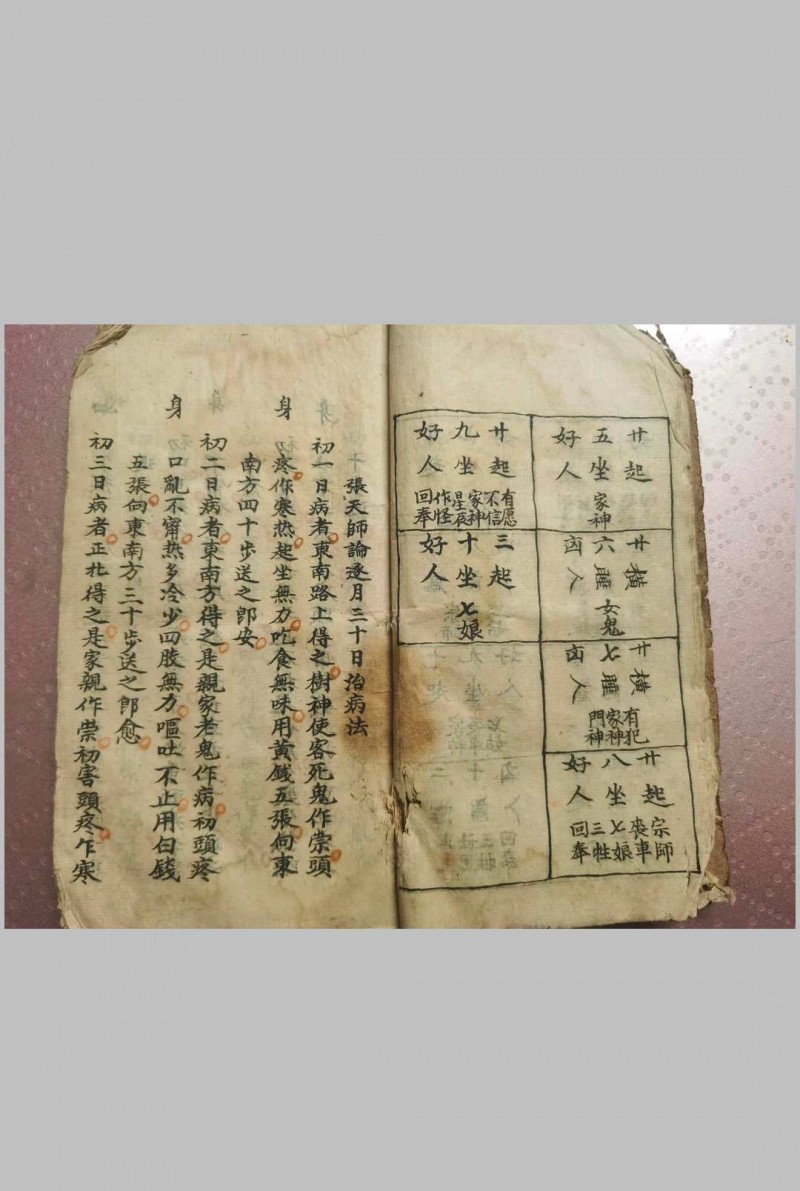 廿起
五坐家神
好人
廿橫
六睡女鬼
凶人
廿橫
七睡
凶人
有犯
家神
門神
廿起
八坐
好人
宗師
喪車
七娘
三牲
回奉
廿起
九坐
好人
有愿
不信
家神
星辰
作怪
回奉
三起
十坐七娘
好人
張天師論逐月三十日治病法
初一日病者東南路上得之樹神使客死鬼作祟頭
身疼作寒热起坐無力吃食無味用黄銭五張向東
南方四十步送之即安
初二日病者東南方得之是親家老鬼作病初頭疼
身口亂不甯热多冷少四肢無力嘔吐不止用白銭
五張向東南方三十步送之即愈
初三日病者正北得之是家親作祟初害頭疼乍寒